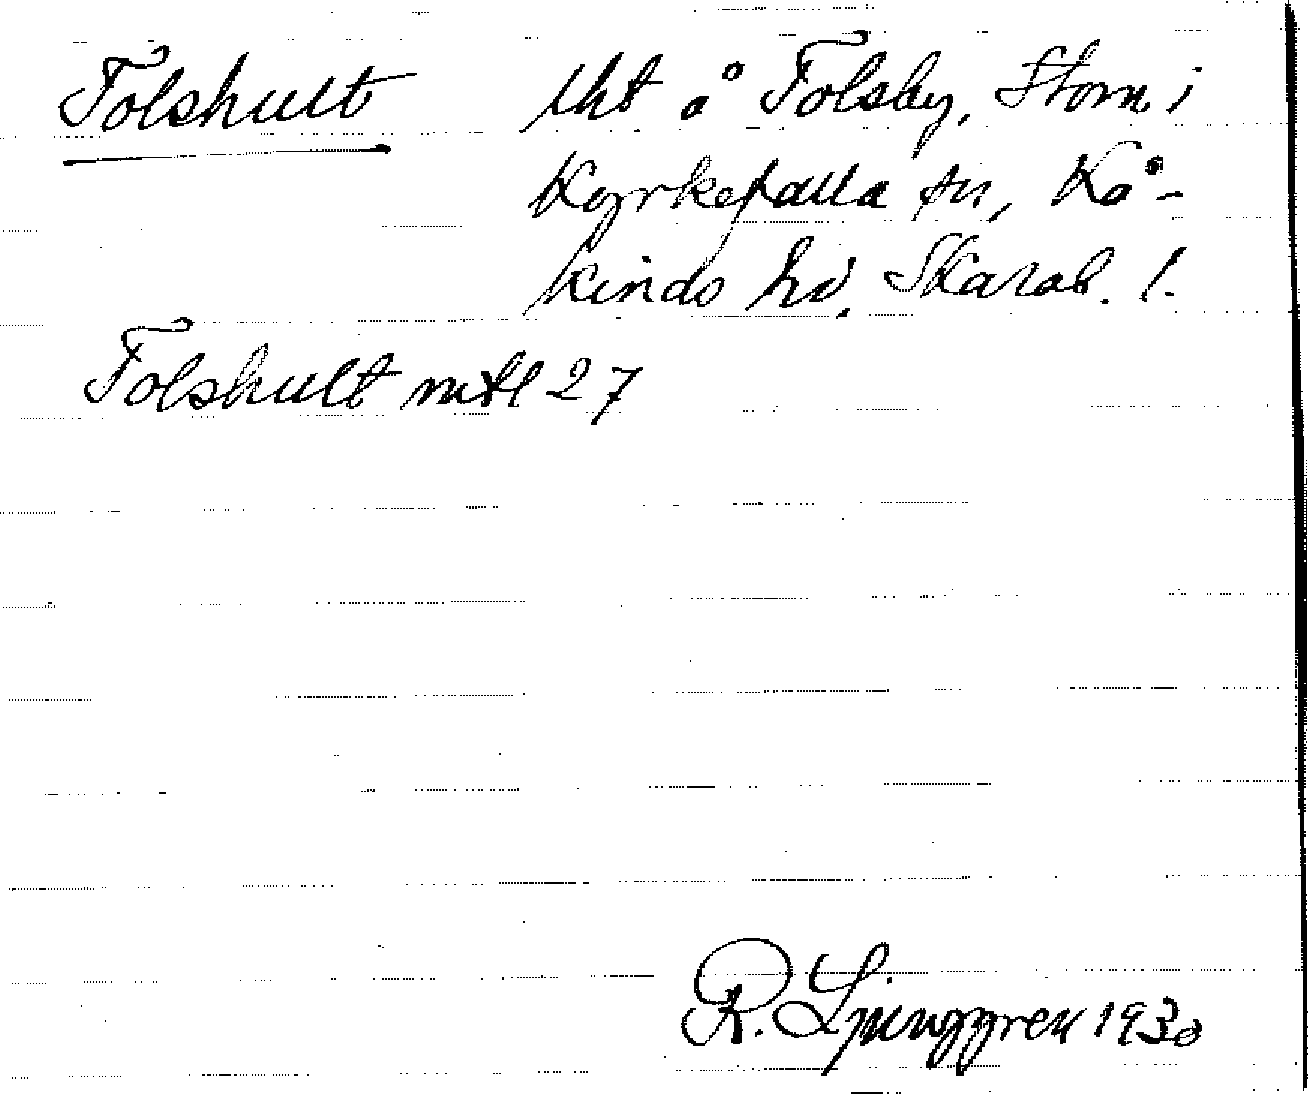 Folshult lht å Folsby, Stom i
Kyrkefalla sn, Kå-
kinds hd, Skarab. l.
Folshult mtl 27
R. Ljunggren 1930